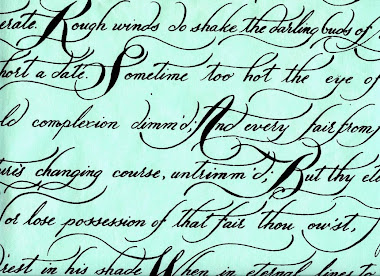 erate. Rough winds do shake the darling buds of
hort a date. Sometime too hot the eye of
ld complexion dimm'd; And every fair from f
ture's changing course, untrimm'd; But thy ete
or lose possession of that fair thou ow'st,
iest in his shade When in eternal lines to